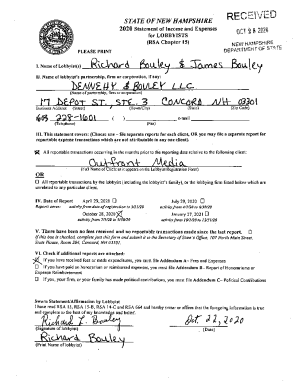 STATE OF NEW HAMPSHIRE
2020 Statement of Income and Expenses
for LOBBYISTS
(RSA Chapter 15)
RECEIVED
OCT 28 2020
NEW HAMPSHIRE
DEPARTMENT OF STATE
PLEASE PRINT
I. Name of Lobbyist(s) Richard Bouley & James Bouley
II. Name of lobbyist's partnership, firm or corporation, if any:
DENNEHY & BOULEY LLC
(Name of partnership, firm or corporation)
17 DEPOT ST., STE. 3 CONCORD NH 03301
(Town/City) (State) (Zip Code)
603 228-1601 ( ) e-mail
(Telephone) (Fax)
III. This statement covers: (Choose one – file separate reports for each client, OR you may file a separate report for
reportable expense transactions which are not attributable to any one client).
All reportable transactions occurring in the months prior to the reporting date relative to the following client:
Outfront Media
(Full Name of Client as it appears on the Lobbyist Registration Form)
OR
All reportable transactions by the lobbyist (including the lobbyist's family), or the lobbying firm listed below which are
unrelated to any particular client.
IV. Date of Report April 29, 2020 July 29, 2020
October 28, 2020 January 27, 2021
V. There have been no fees received and no reportable transactions made since the last report.
If this box is checked, complete just this form and submit it to the Secretary of State's Office, 107 North Main Street,
State House, Room 204, Concord, NH 03301.
VI. Check if additional reports are attached:
If you have received fees or made expenditures, you must file Addendum A – Fees and Expenses
If you have paid an honorarium or reimbursed expenses, you must file Addendum B – Report of Honorariums or
Expense Reimbursement
If you, your firm, or your family has made political contributions, you must file Addendum C – Political Contributions
Sworn Statement/Affirmation by Lobbyist
I have read RSA 15, RSA 15-B, RSA 14-C and RSA 664 and hereby swear or affirm that the foregoing information is true
and complete to the best of my knowledge and belief.
Richard L. Bouley Oct 22, 2020
(Signature of lobbyist) (Date)
Richard Bouley
(Print Name of lobbyist)